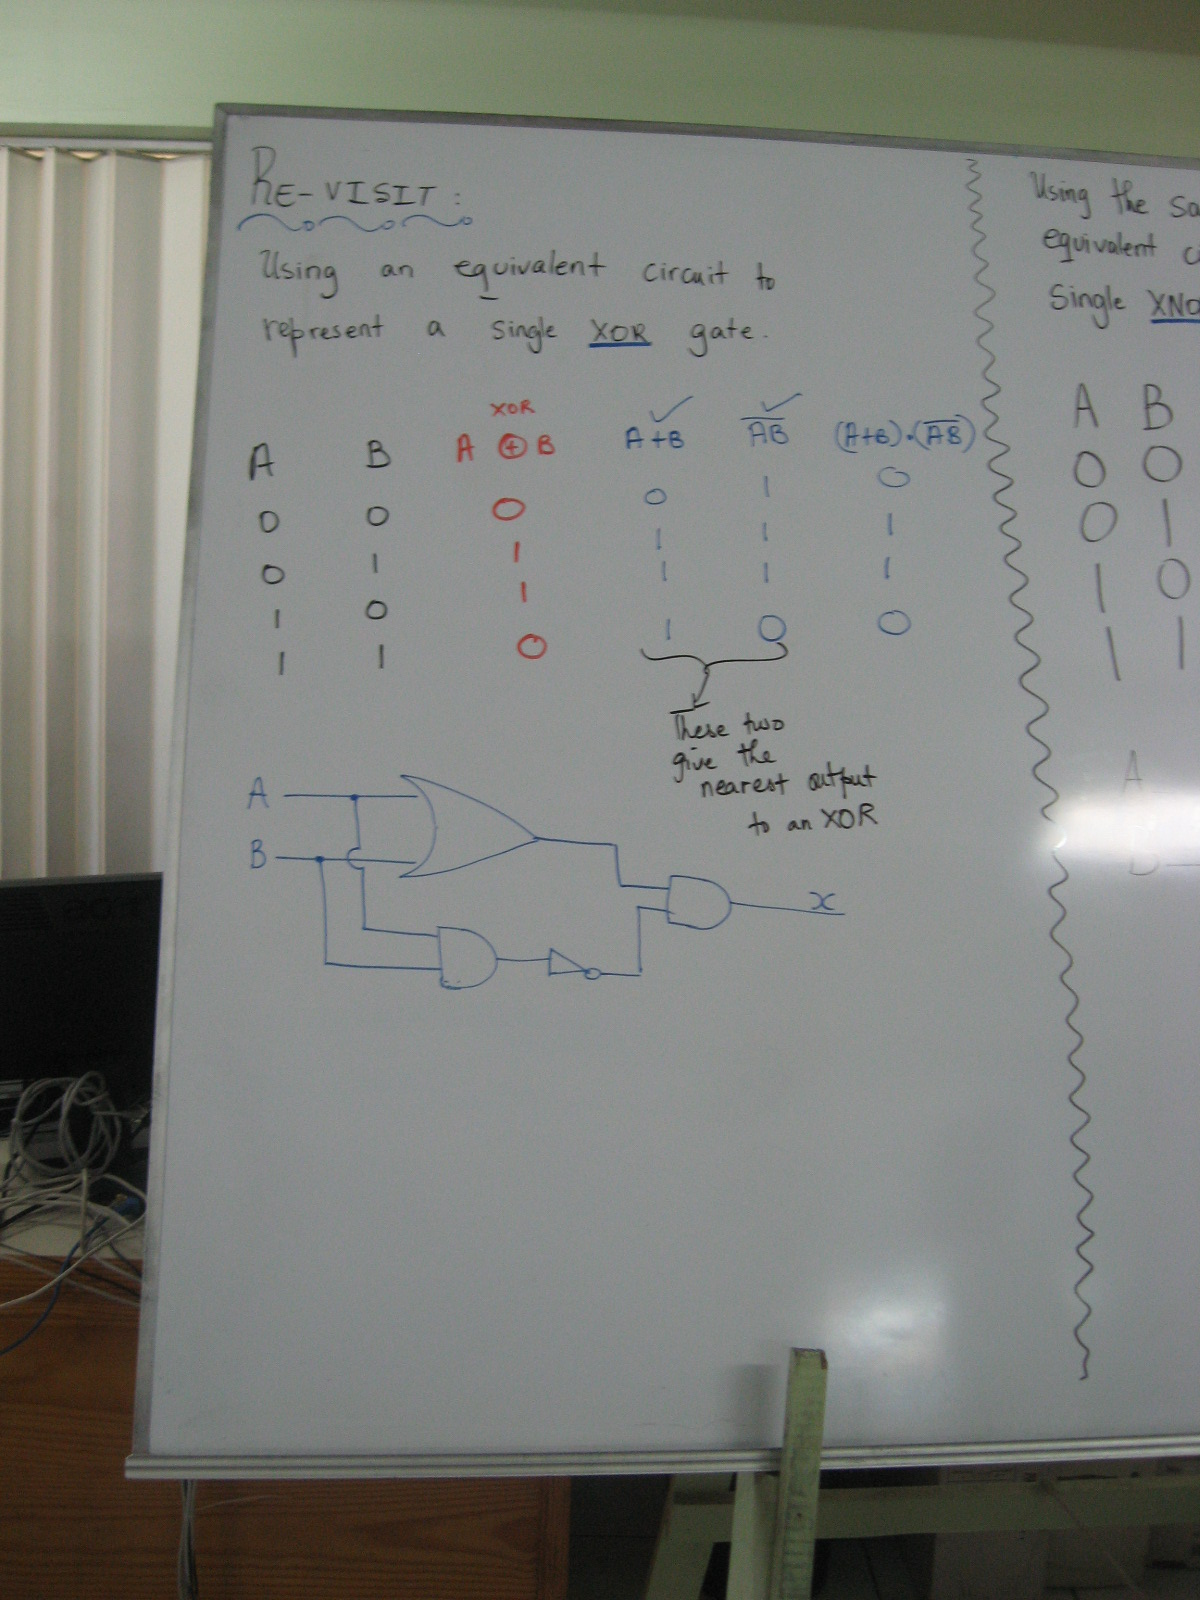 RE-VISIT:
Using an equivalent circuit to
represent a single XOR gate.
XOR
A B A ⊕ B A+B A̅B̅ (A+B)•(A̅B̅)
0 0 0 0 1 0
0 1 1 1 1 1
1 0 1 1 1 1
1 1 0 1 0 0
These two
give the
nearest output
to an XOR
A
B
x
Using the
equivalent
Single
A B
0 0
0 1
1 0
1 1
A
B